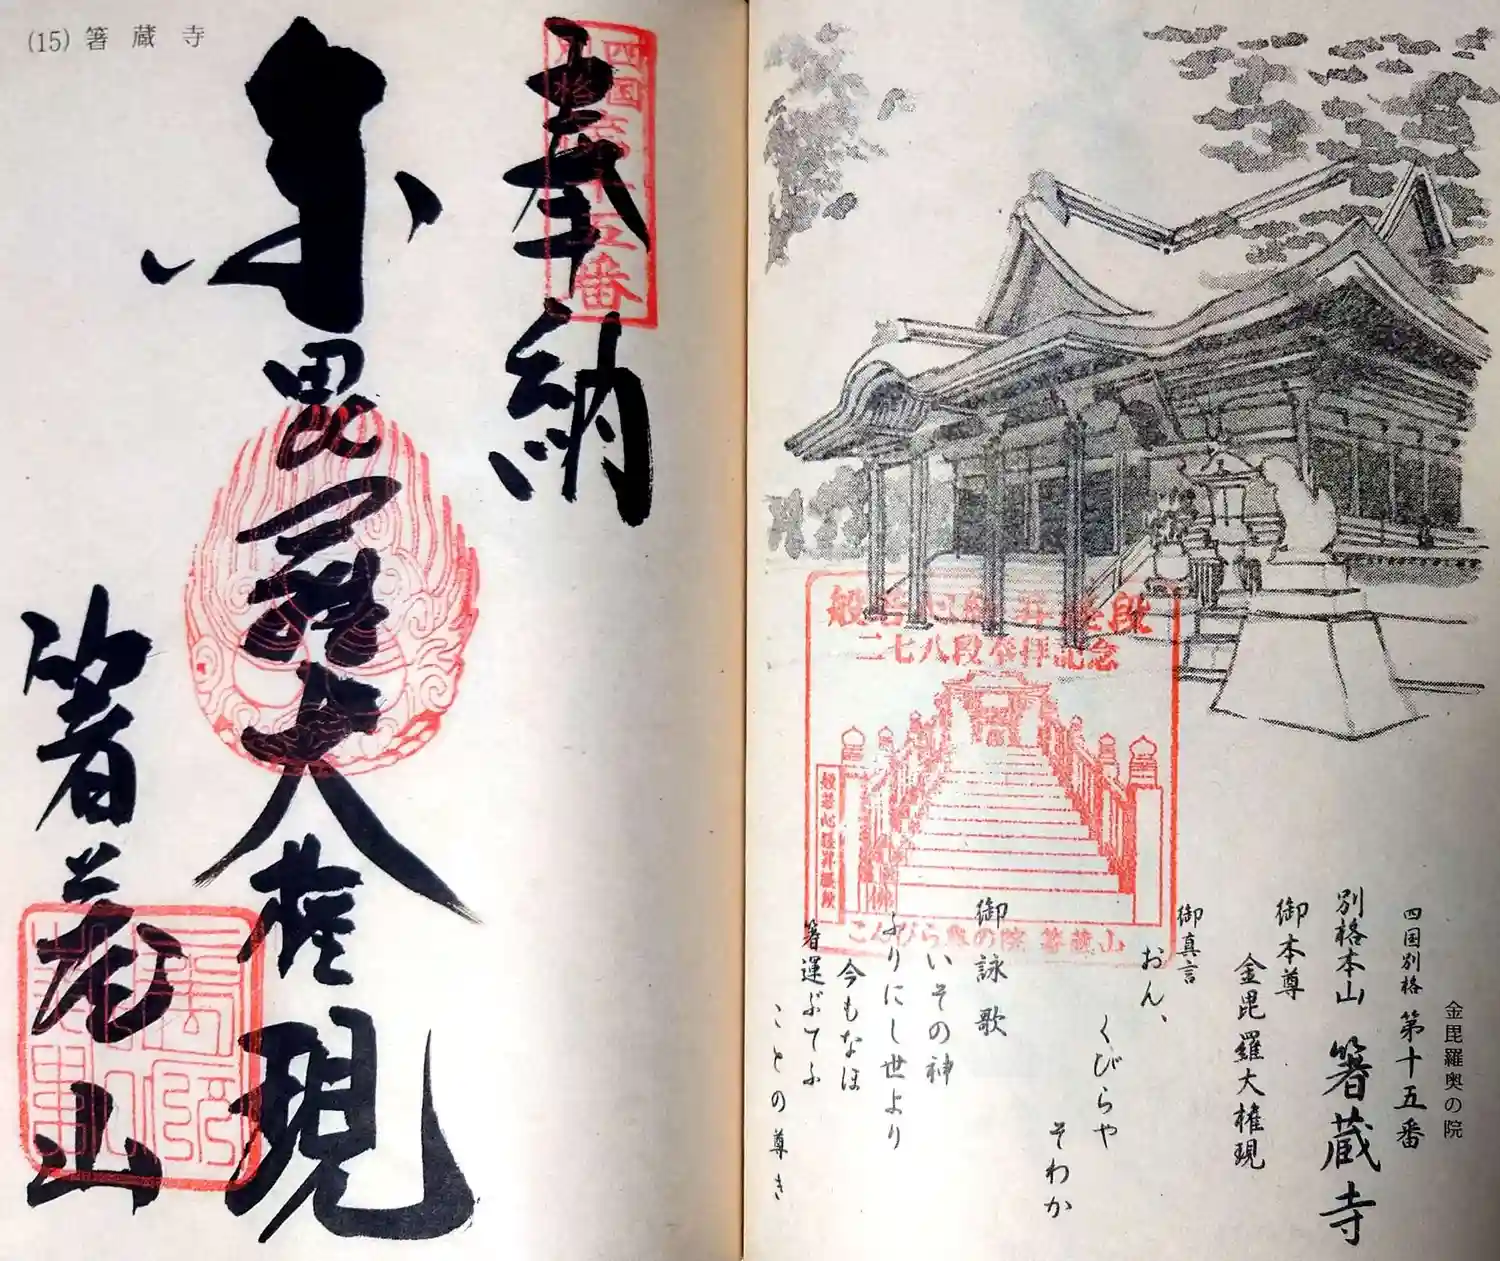 (15) 箸蔵寺
奉納
四国
別格
第十五番
金毘羅大権現
箸蔵山
金毘羅奥の院
四国別格 第十五番
別格本山 箸蔵寺
御本尊
金毘羅大権現
御真言
おん、
くびらや
そわか
御詠歌
いその神
ふりにし世より
今もなほ
箸運ぶてふ
ことの尊き
般若心経昇経段
二七八段参拝記念
般若心経昇経段
こんぴら奥の院 箸蔵山